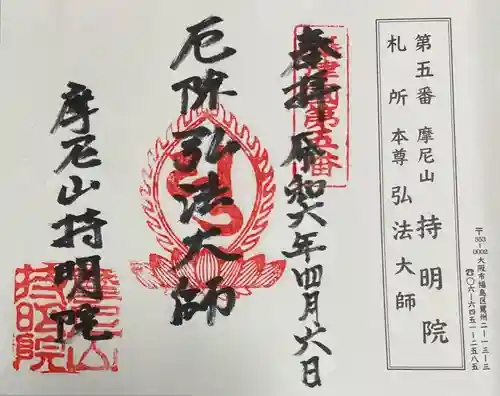 第五番 摩尼山 持明院
札所本尊 弘法大師
〒553-0002 大阪市福島区鷺州二-一三-三
☎〇六-六四五一-二五八五
摂津国第五番
奉拝 令和六年四月六日
厄除弘法大師
摩尼山持明院
摩尼山
持明院